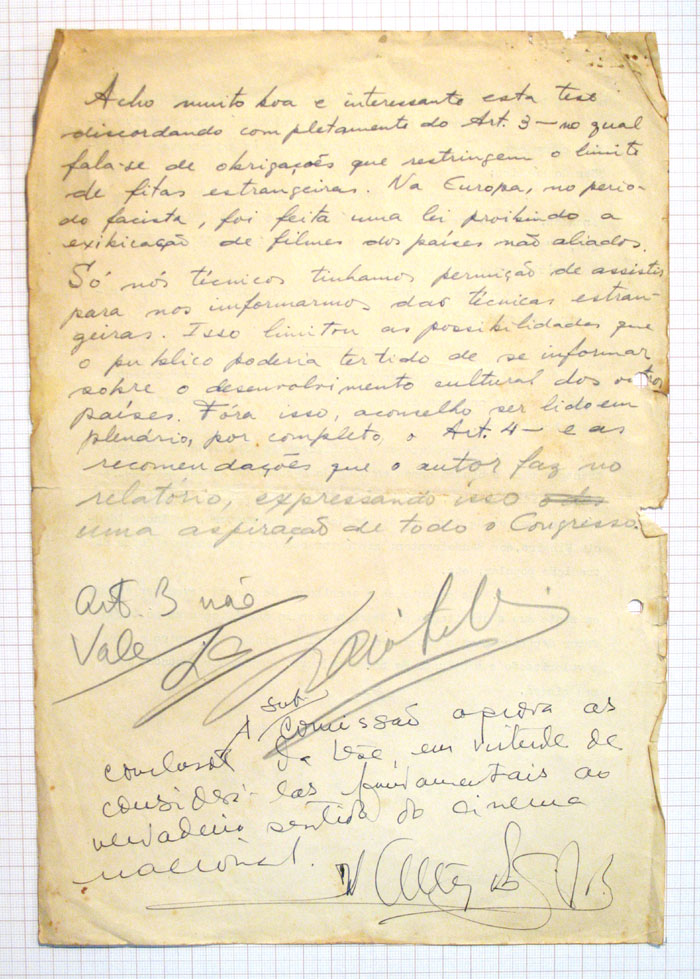 Acho muito boa e interessante esta tese
discordando completamente do Art. 3 — no qual
fala-se de obrigações que restringem o limite
de fitas estrangeiras. Na Europa, no perio-
do facista, foi feita uma lei proibindo a
exibicação de filmes dos países não aliados.
Só nós técnicos tinhamos permição de assistir
para nos informarmos das técnicas estran-
geiras. Isso limitou as possibilidades que
o publico poderia ter tido de se informar
sobre o desenvolvimento cultural dos outros
países. Fóra isso, aconselho ser lido em
plenário, por completo, o Art. 4 — e as
recomendações que o autor faz no
relatório, expressando isso
uma aspiração de todo o Congresso.
Art. 3 não
Vale
sub
A Comissão aprova as
conclusões da tese, em virtude de
considerá-las fundamentais ao
verdadeiro sentido do cinema
nacional.